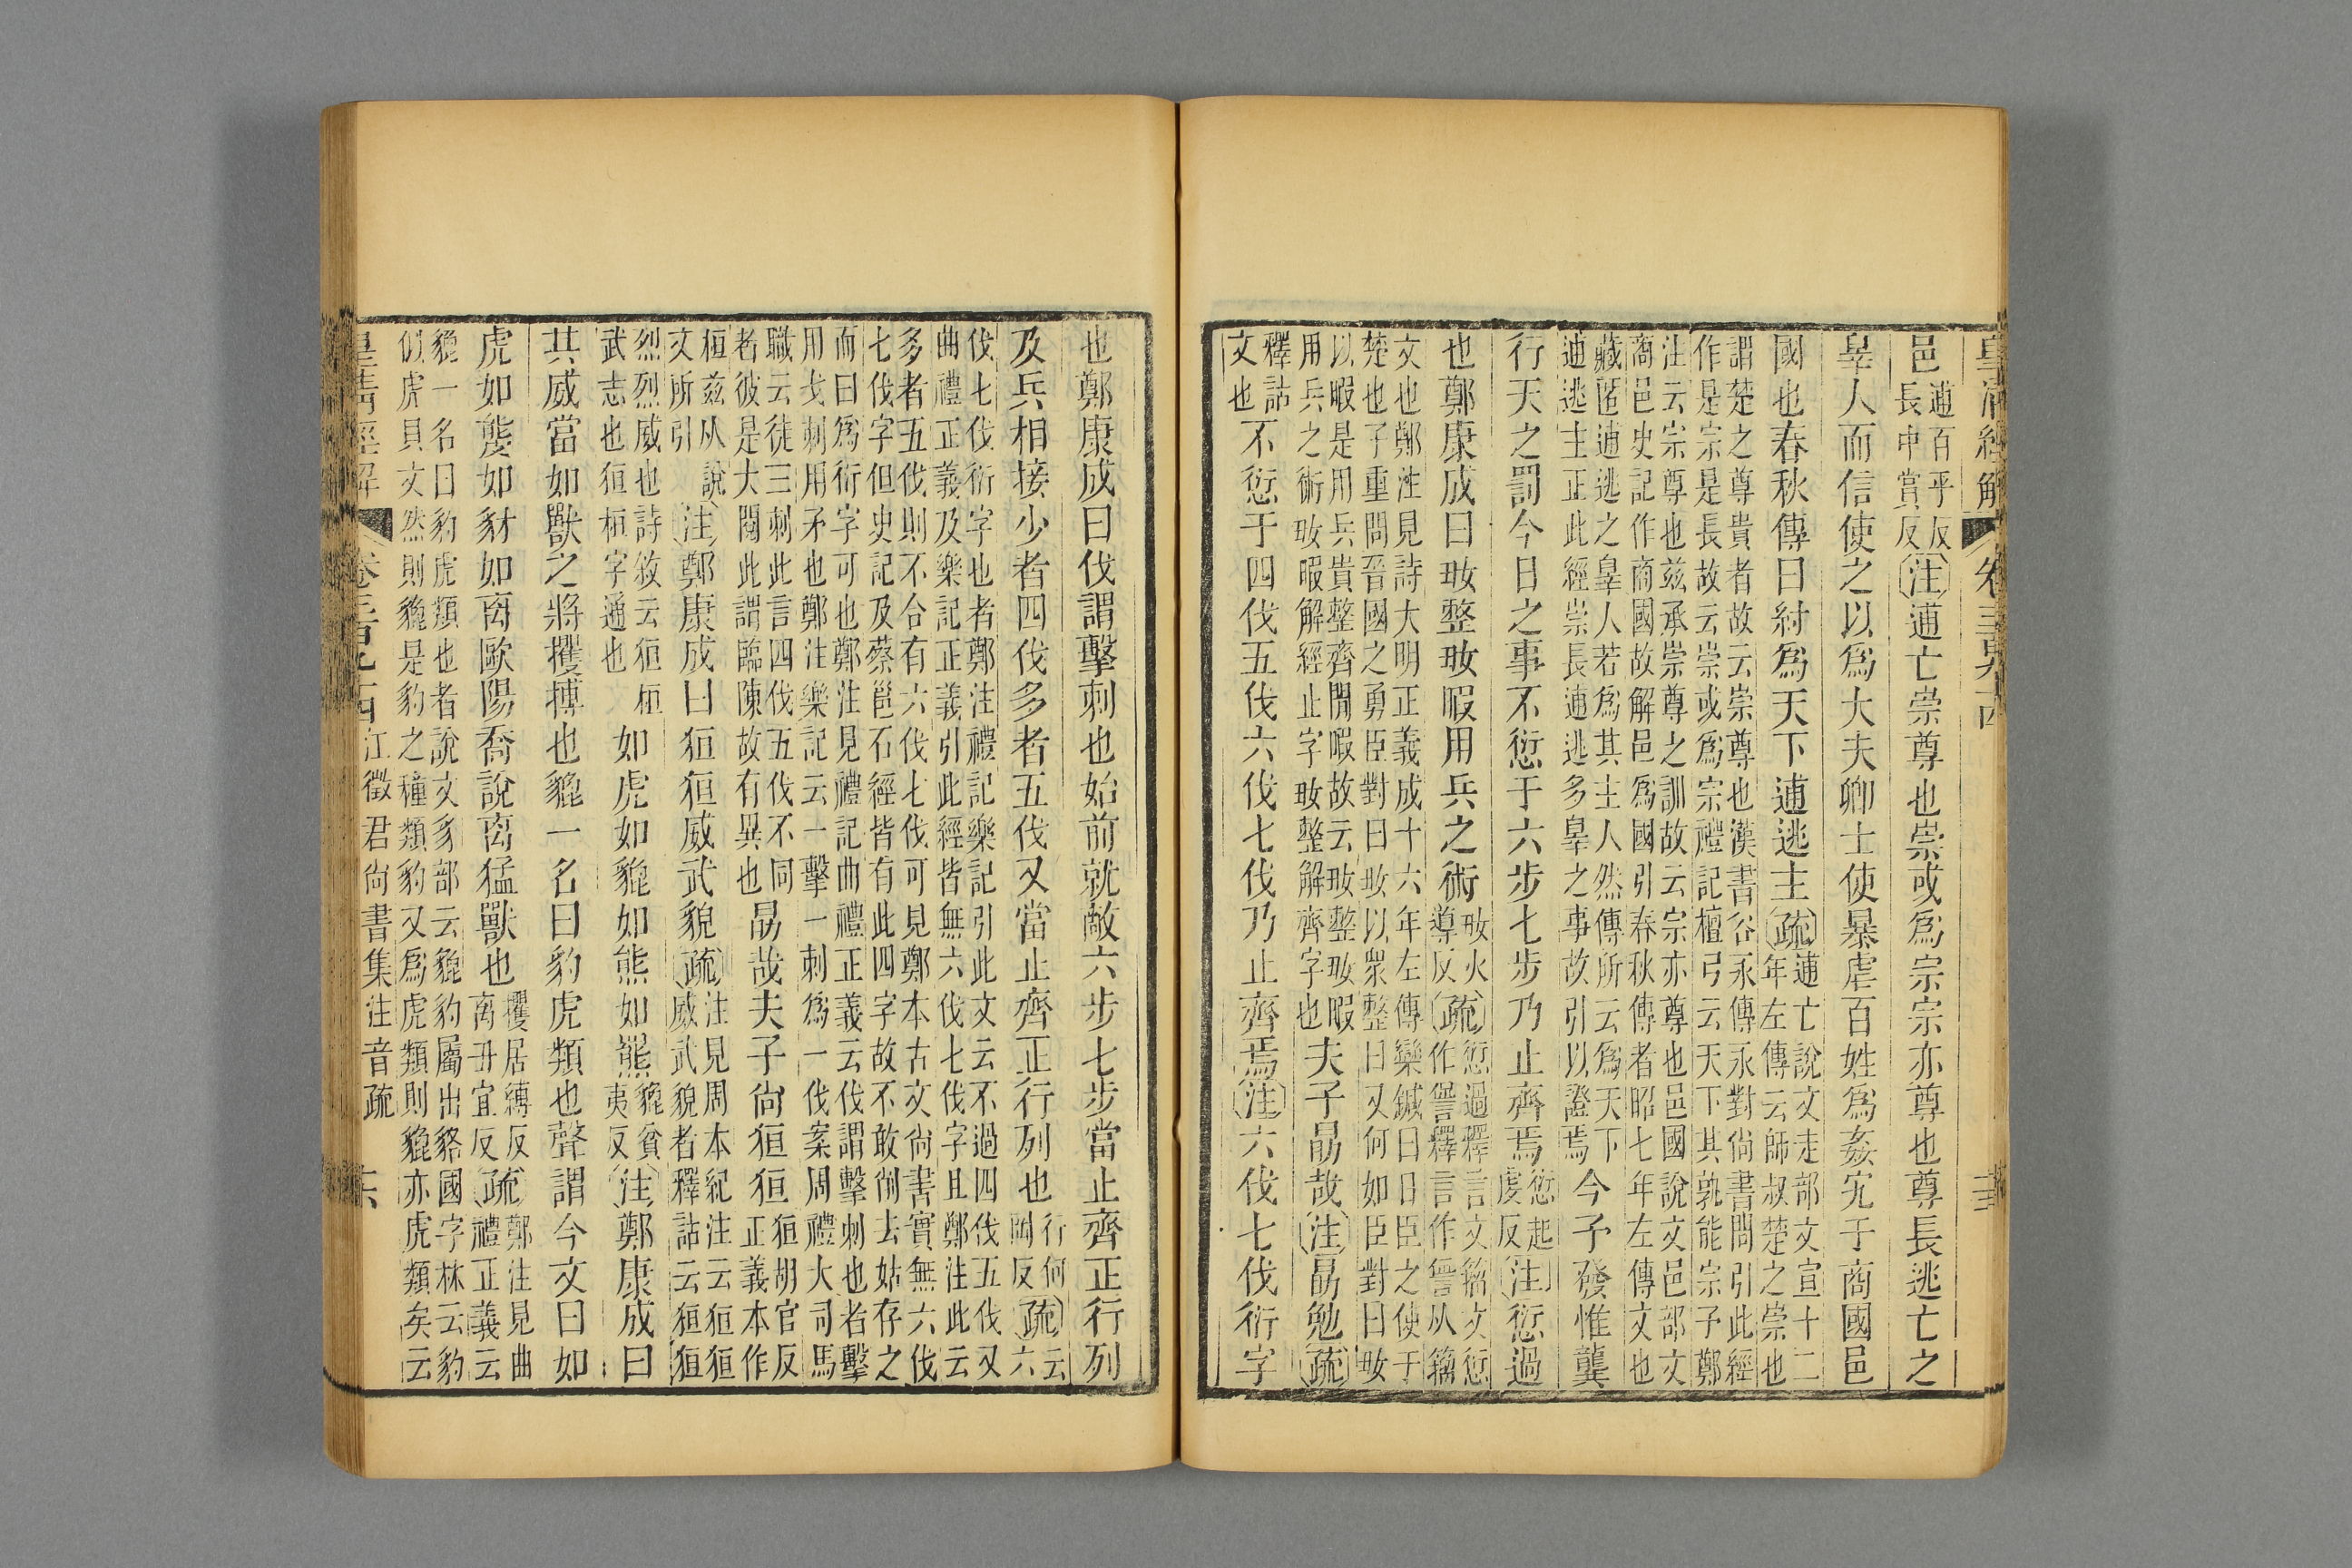 皇清經解 卷三百九十四
邑逋百乎反長中賞反注逋亡崇尊也崇或爲宗宗亦尊也尊長逃亡之
辠人而信使之以爲大夫卿士使暴虐百姓爲姦宄于商國邑
國也春秋傳曰紂爲天下逋逃主疏逋亡說文走部文宣十二年左傳云師叔楚之崇也
謂楚之尊貴者故云崇尊也漢書谷永傳永對尙書問引此經作是宗是長故云崇或爲宗禮記檀弓云天下其孰能宗子鄭
注云宗尊也兹承崇尊之訓故云宗亦尊也邑國說文邑部文商邑史記作商國故解邑爲國引春秋傳者昭七年左傳文也
藏匿逋逃之辠人若爲其主人然傳所云爲天下逋逃主正此經崇長逋逃多辠之事故引以證焉今予發惟龔
行天之罰今日之事不愆于六步七步乃止齊焉愆起虔反注愆過
也鄭康成曰㪃整㪃暇用兵之術㪃火導反疏愆過釋言文籀文愆作諐釋言作諐从籀
文也鄭注見詩大明正義成十六年左傳欒鍼曰日臣之使于楚也子重問晉國之勇臣對曰㪃以眾整曰又何如臣對曰㪃
以暇是用兵貴整齊閒暇故云㪃整㪃暇用兵之術㪃暇解經止字㪃整解齊字也夫子勗哉注勗勉疏
釋詁文也不愆于四伐五伐六伐七伐乃止齊焉注六伐七伐衍字
也鄭康成曰伐謂擊刺也始前就敵六步七步當止齊正行列
及兵相接少者四伐多者五伐又當止齊正行列也行何岡反疏云六
伐七伐衍字也者鄭注禮記樂記引此文云不過四伐五伐又曲禮正義及樂記正義引此經皆無六伐七伐字且鄭注此云
多者五伐則不合有六伐七伐可見鄭本古文尙書實無六伐七伐字但史記及蔡邕石經皆有此四字故不敢衝去姑存之
而曰爲衍字可也鄭注見禮記曲禮正義云伐謂擊刺也者擊用戈刺用矛也鄭注樂記云一擊一刺爲一伐案周禮大司馬
職云徒三刺此言四伐五伐不同者彼是大閱此謂臨陳故有異也勗哉夫子尙狟狟狟胡官反正義本作
桓兹从說文所引注鄭康成曰狟狟威武貌疏注見周本紀注云狟狟威武貌者釋詁云狟狟
烈烈威也詩敘云狟桓武志也狟桓字通也如虎如貔如熊如羆貔貧夷反注鄭康成曰
其威當如獸之將攫搏也貔一名曰豹虎類也聲謂今文曰如
虎如羆如豺如离歐陽喬說离猛獸也攫居縛反离丑宜反疏鄭注見曲禮正義云
貔一名曰豹虎類也者說文豸部云貔豹屬出貉國字林云豹似虎貝文然則貔是豹之種類豹又爲虎類則貔亦虎類矣云
皇清經解 卷三百九十四 江徵君尙書集注音疏 六